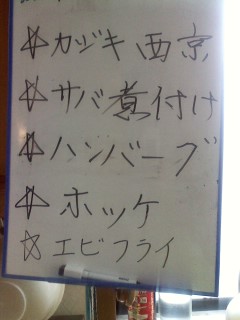 ☆カジキ西京
☆サバ煮付け
☆ハンバーグ
☆ホッケ
☆エビフライ